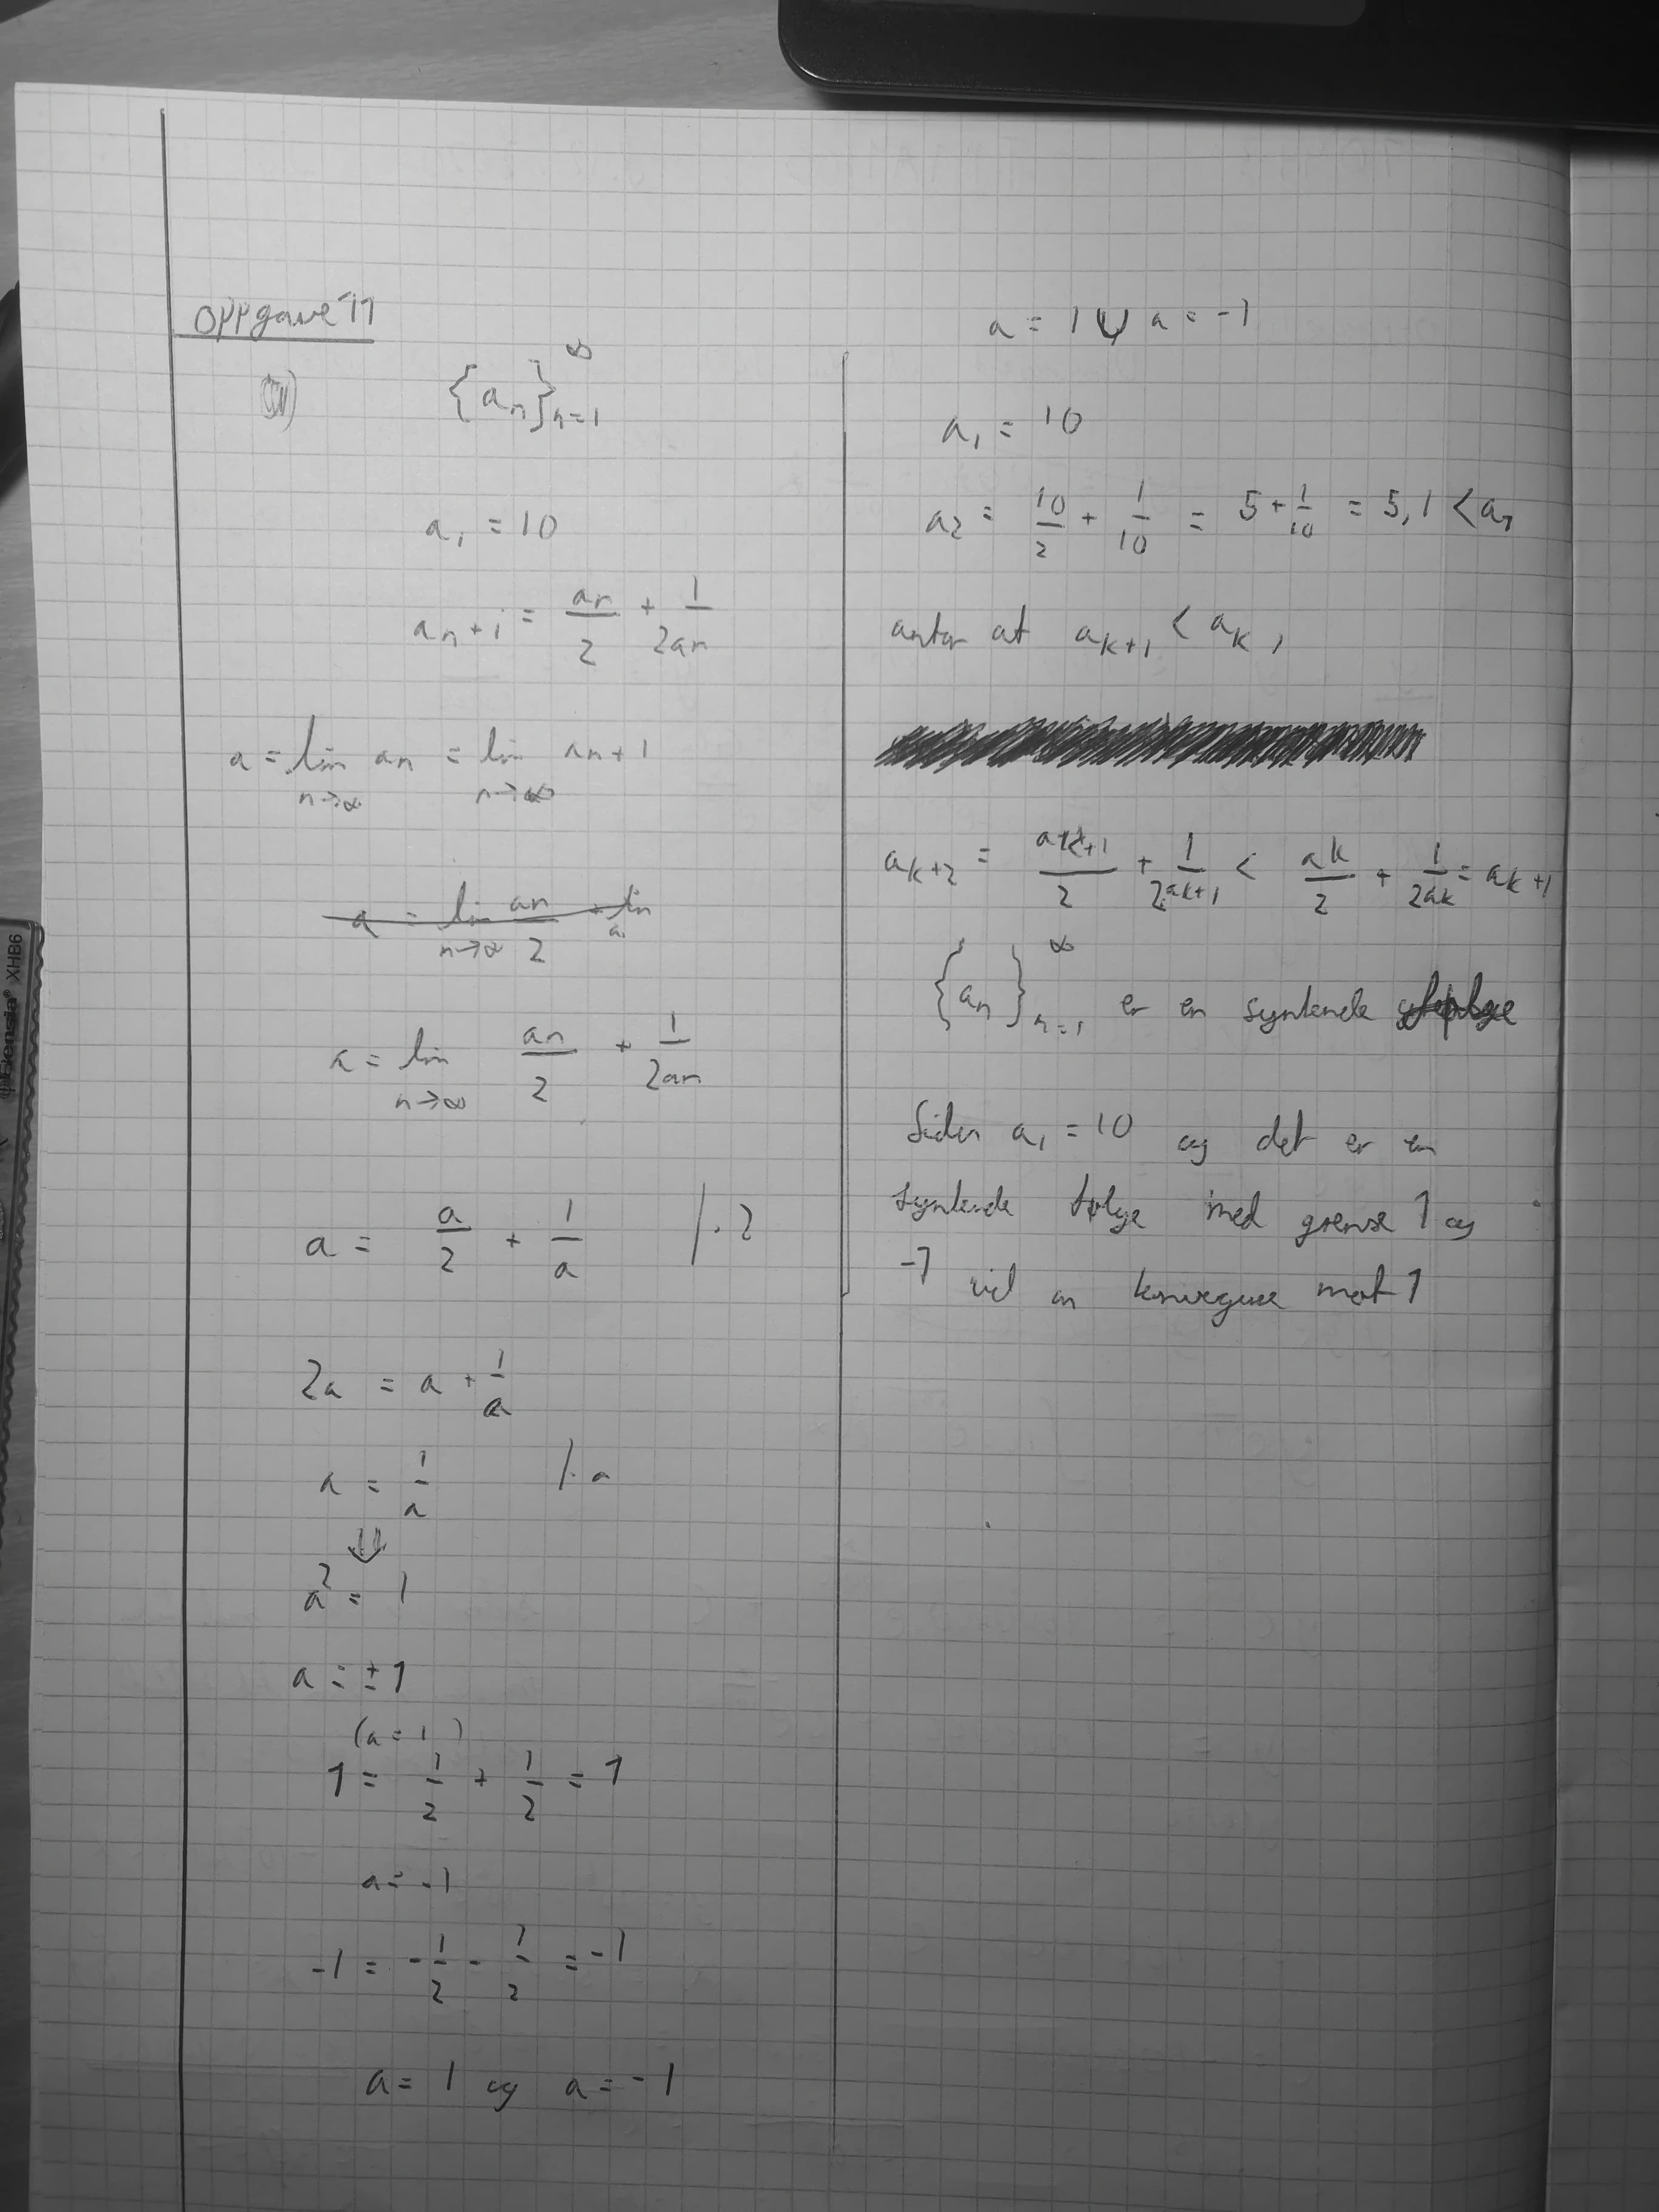 Oppgave 11
{aₙ}ₙ₌₁^∞
a₁ = 10
aₙ₊₁ = aₙ/2 + 1/(2aₙ)
a = lim n→∞ aₙ = lim n→∞ aₙ₊₁
a = lim n→∞ aₙ/2 + 1/(2aₙ)
a = a/2 + 1/a |·2
2a = a + 1/a
a = 1/a |·a
⇓
a² = 1
a = ±1
(a = 1)
1 = 1/2 + 1/2 = 1
a = -1
-1 = -1/2 - 1/2 = -1
a = 1 og a = -1
a = 1 ∪ a = -1
a₁ = 10
a₂ = 10/2 + 1/10 = 5 + 1/10 = 5,1 < a₁
antar at aₖ₊₁ < aₖ,
aₖ₊₂ = aₖ₊₁/2 + 1/(2aₖ₊₁) < aₖ/2 + 1/(2aₖ) = aₖ₊₁
{aₙ}ₙ₌₁^∞ er en synkende
Siden a₁ = 10 og det er en
synkende følge med grense 1 og
-1 vil an konvergere mot 1
Elensia® XHB6